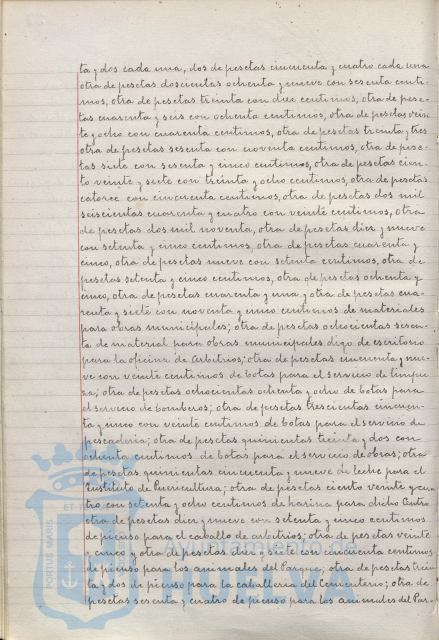 ta y dos cada una, dos de pesetas cincuenta y cuatro cada una
otra de pesetas doscientas ochenta y nueve con sesenta centi-
mos, otra de pesetas treinta con doce centimos, otra de pese-
tas cuarenta y seis con ochenta centimos, otra de pesetas vein-
te y ocho con cuarenta centimos, otra de pesetas treinta y tres
otra de pesetas sesenta con noventa centimos, otra de pese-
tas siete con sesenta y cinco centimos, otra de pesetas cien-
to veinte y siete con treinta y ocho centimos, otra de pesetas
catorce con cincuenta centimos, otra de pesetas dos mil
seiscientas cuarenta y cuatro con veinte centimos, otra
de pesetas dos mil noventa, otra de pesetas diez y nueve
con setenta y cinco centimos, otra de pesetas cuarenta y
cinco, otra de pesetas nueve con setenta centimos, otra de
pesetas setenta y cinco centimos, otra de pesetas ochenta y
cinco, otra de pesetas cuarenta y una y otra de pesetas cua-
renta y siete con noventa y cinco centimos de materiales
para obras municipales; otra de pesetas ochocientas sesen-
ta de material para obras municipales digo de escritorio
para la oficina de Arbitrios; otra de pesetas cincuenta y nue-
ve con veinte centimos de botas para el servicio de limpie-
za; otra de pesetas ochocientas ochenta y ocho de botas para
el servicio de bomberos; otra de pesetas trescientas cincuen-
ta y cinco con veinte centimos de botas para el servicio de
pescaderia; otra de pesetas quinientas treinta y dos con
ochenta centimos de botas para el servicio de obras; otra
de pesetas quinientas cincuenta y nueve de leche para el
Instituto de Puericultura; otra de pesetas ciento veinte y cua-
tro con setenta y ocho centimos de harina para dicho Centro
otra de pesetas diez y nueve con setenta y cinco centimos
de pienso para el caballo de arbitrios; otra de pesetas veinte
y cinco y otra de pesetas diez y siete con cincuenta centimos
de pienso para los animales del Parque; otra de pesetas trein-
ta y dos de pienso para la caballeria del Cementerio; otra de
pesetas sesenta y cuatro de pienso para los animales del Par-
PORTUS MARIS
ET
Ayuntamiento de
HUELVA